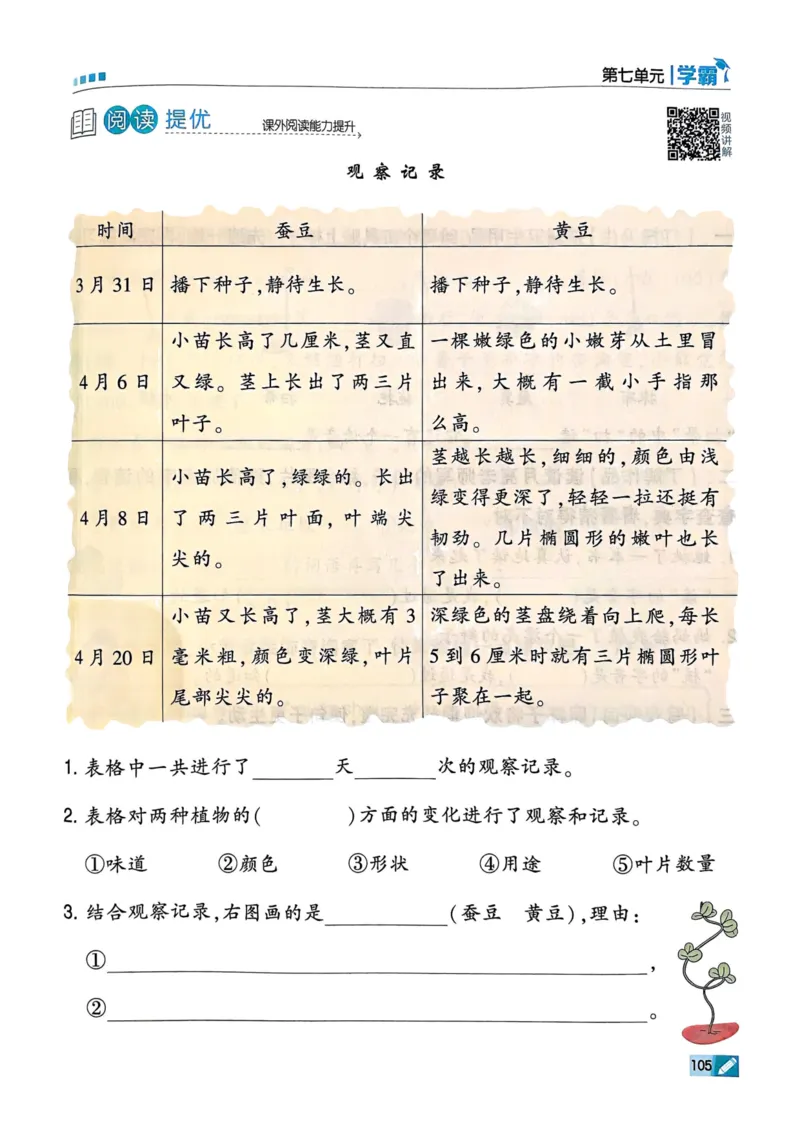 第七单元 学霸
阅读 提优 课外阅读能力提升
视频讲解
观察记录
时间 蚕豆 黄豆
3月31日 播下种子,静待生长。 播下种子,静待生长。
4月6日 小苗长高了几厘米,茎又直又绿。茎上长出了两三片叶子。 一棵嫩绿色的小嫩芽从土里冒出来,大概有一截小手指那么高。
4月8日 小苗长高了,绿绿的。长出了两三片叶面,叶端尖尖的。 茎越长越长,细细的,颜色由浅绿变得更深了,轻轻一拉还挺有韧劲。几片椭圆形的嫩叶也长了出来。
4月20日 小苗又长高了,茎大概有3毫米粗,颜色变深绿,叶片尾部尖尖的。 深绿色的茎盘绕着向上爬,每长5到6厘米时就有三片椭圆形叶子聚在一起。
1. 表格中一共进行了________天________次的观察记录。
2. 表格对两种植物的(        )方面的变化进行了观察和记录。
①味道 ②颜色 ③形状 ④用途 ⑤叶片数量
3. 结合观察记录,右图画的是____________(蚕豆 黄豆),理由:
①____________________________________________________,
②____________________________________________________。
105